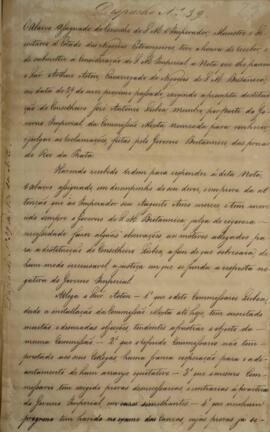 Despacho N.º 39
O Abaixo Assignado do Conselho de S. M. o Imperador, Ministro e Se-
cretario d'Estado dos Negocios Estrangeiros, teve a honra de receber, e
de submetter á consideração de S. M. Imperial a Nota que lhe passou
o Snr. Arthur Aston, Encarregado de Negocios de S. M. Britannica,
na data de 29 do mez proximo passado, requerendo a prompta destituição
do Conselheiro José Antonio Lisboa, Membro por parte do Go-
verno Imperial da Commissão Mixta nomeada para conhecer
e julgar as reclamações feitas pelo Governo Britannico das presas
do Rio da Prata.
Havendo recebido ordem para responder á dita Nota,
o Abaixo Assignado, em desempenho do seu dever, e em prova da at-
tenção que ao Imperador seu Augusto Amo merece e tem mere-
cido sempre o Governo de S. M. Britannica, julga de rigorosa
necessidade fazer algumas observações aos motivos allegados para
a destituição do Conselheiro Lisboa, a fim de que sobresaia de
hum modo a justiça em que se funda a resposta ne-
gativa do Governo Imperial.
Allega o Snr. Aston — 1º que o dito Commissario Lisboa,
desde a installação da Commissão Mixta até hoje, tem suscitado
muitas e desusadas objeções, tendentes a frustrar o objecto da
mesma Commissão — 2º que o referido Commissario não tem
prestado aos seus Collegas huma franca cooperação para o a-
diantamento de hum arranjo equitativo — 3º que o mesmo Com-
missario tem exigido provas desnecessarias e contrarias á practica
do Governo Imperial em casos semelhantes — 4º que nenhum
progresso tem havido no exame dos casos, cujas provas já se